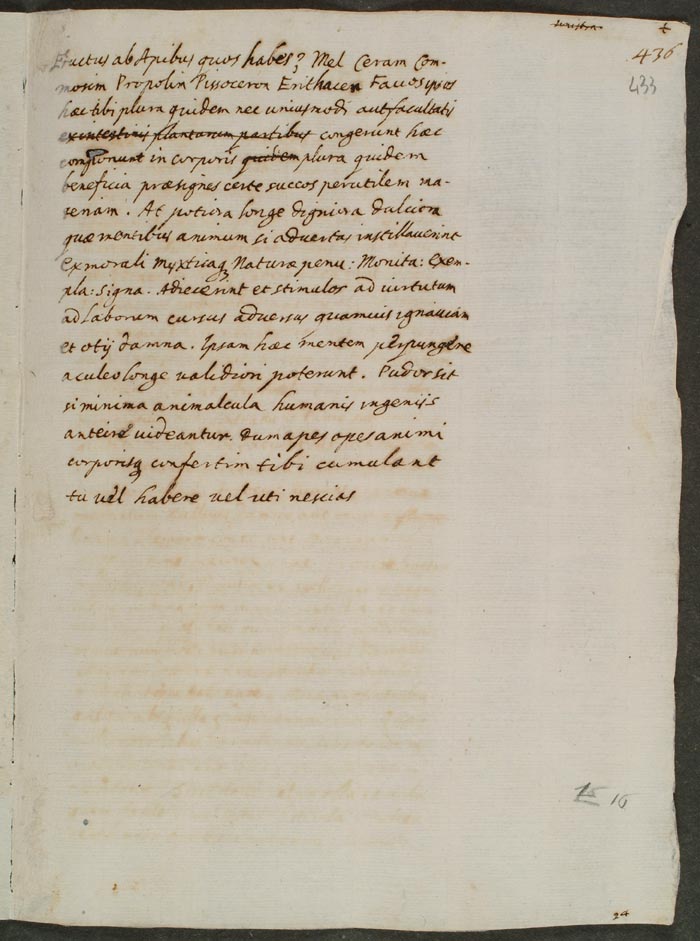 +
436
433
Fructus ab Apibus quos habes? Mel Ceram Com-
mosim Propolin Pissoceron Erithacen Fauos ipsos
hæc tibi plura quidem nec unius modi aut facultati
ex intestinis plantarum partibus congerunt hæc
in corporis quidem plura quidem
beneficia præsignes certe succos perutilem ma-
teriam. At potiora longe digniora dulciora
quæ mentibus animum si aduertas instillauerint
Ex morali Myxticaq Naturæ penu: Monita: Exem-
pla: signa. Adiecerint et stimulos ad uirtutum
ad Laborum cursus aduersus quamuis ignauiam
et otij damna. Ipsam hæc mentem perpungere
aculeo longe validiori poterunt. Pudor sit
si minima animalcula humanis ingenijs
anteire uideantur. dum apes opes animi
corporisq confertim tibi cumulant
tu vel habere uel uti nescias
15 16
24